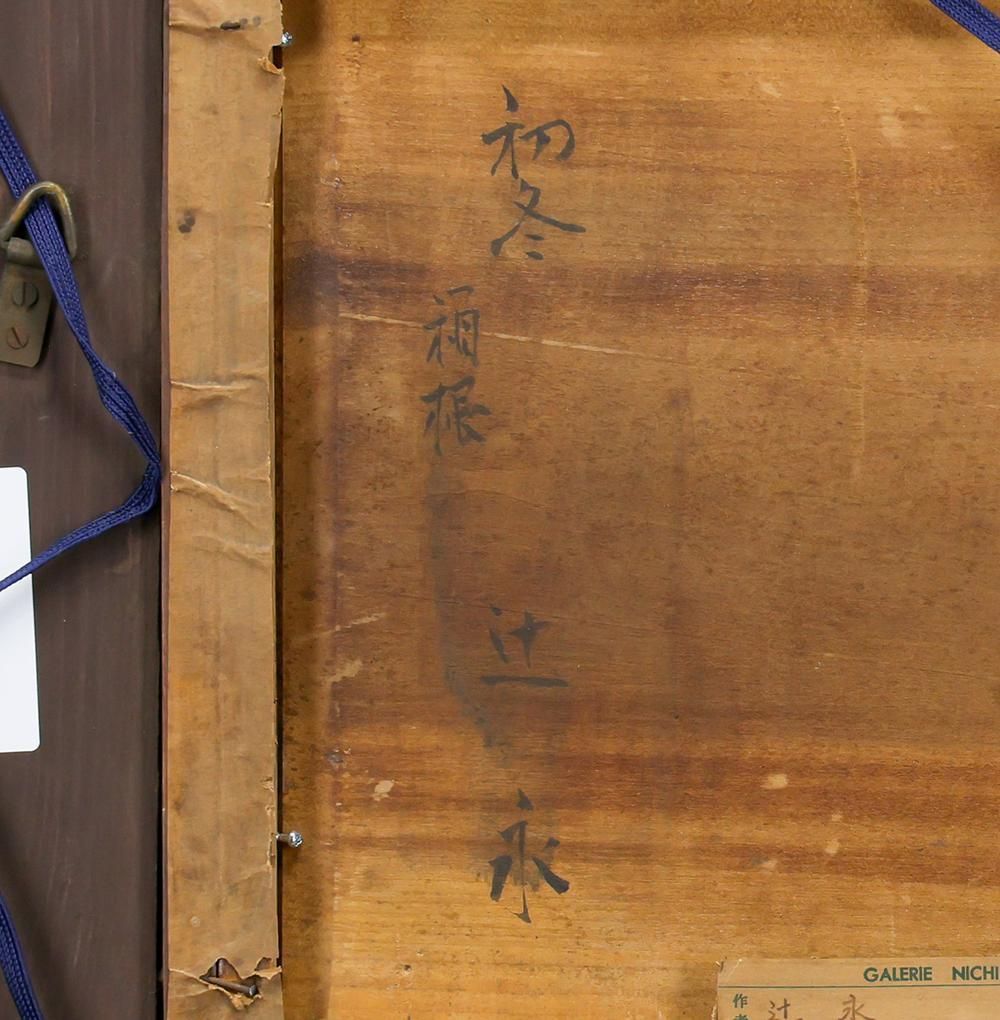 初冬
箱根
辻永
GALERIE NICHI
作者 辻 永